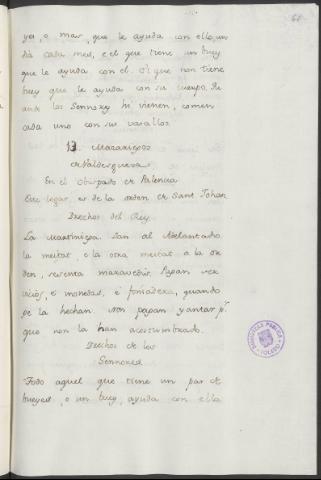 yes, o mas, que le ayuda con ello, un
dia cada mes, e el que tiene un buey
que le ayuda con el. O el que non tiene
buey que le ayuda con su cuerpo. Qu
ando los Sennores hi vienen, comen
cada uno con sus vasallos.
13. Mazariegos
en Valdeguena
En el Obispado de Palencia
Este logar, es de la orden de Sant Johan
Derechos del Rey.
La Martiniega. Dan al Adelantado
la meitat, e la otra meitat, a la or
den, sesenta maravedis. Pagan ser
vicios, e monedas, e fonsadera, quando
ge la hechan. Non pagan yantar p.r
que non la han acostumbrado.
Derechos de los
Sennores
Todo aquel que tiene un par de
bueyes, o un buey, ayuda con ello
BIBLIOTECA PUBLICA
TOLEDO